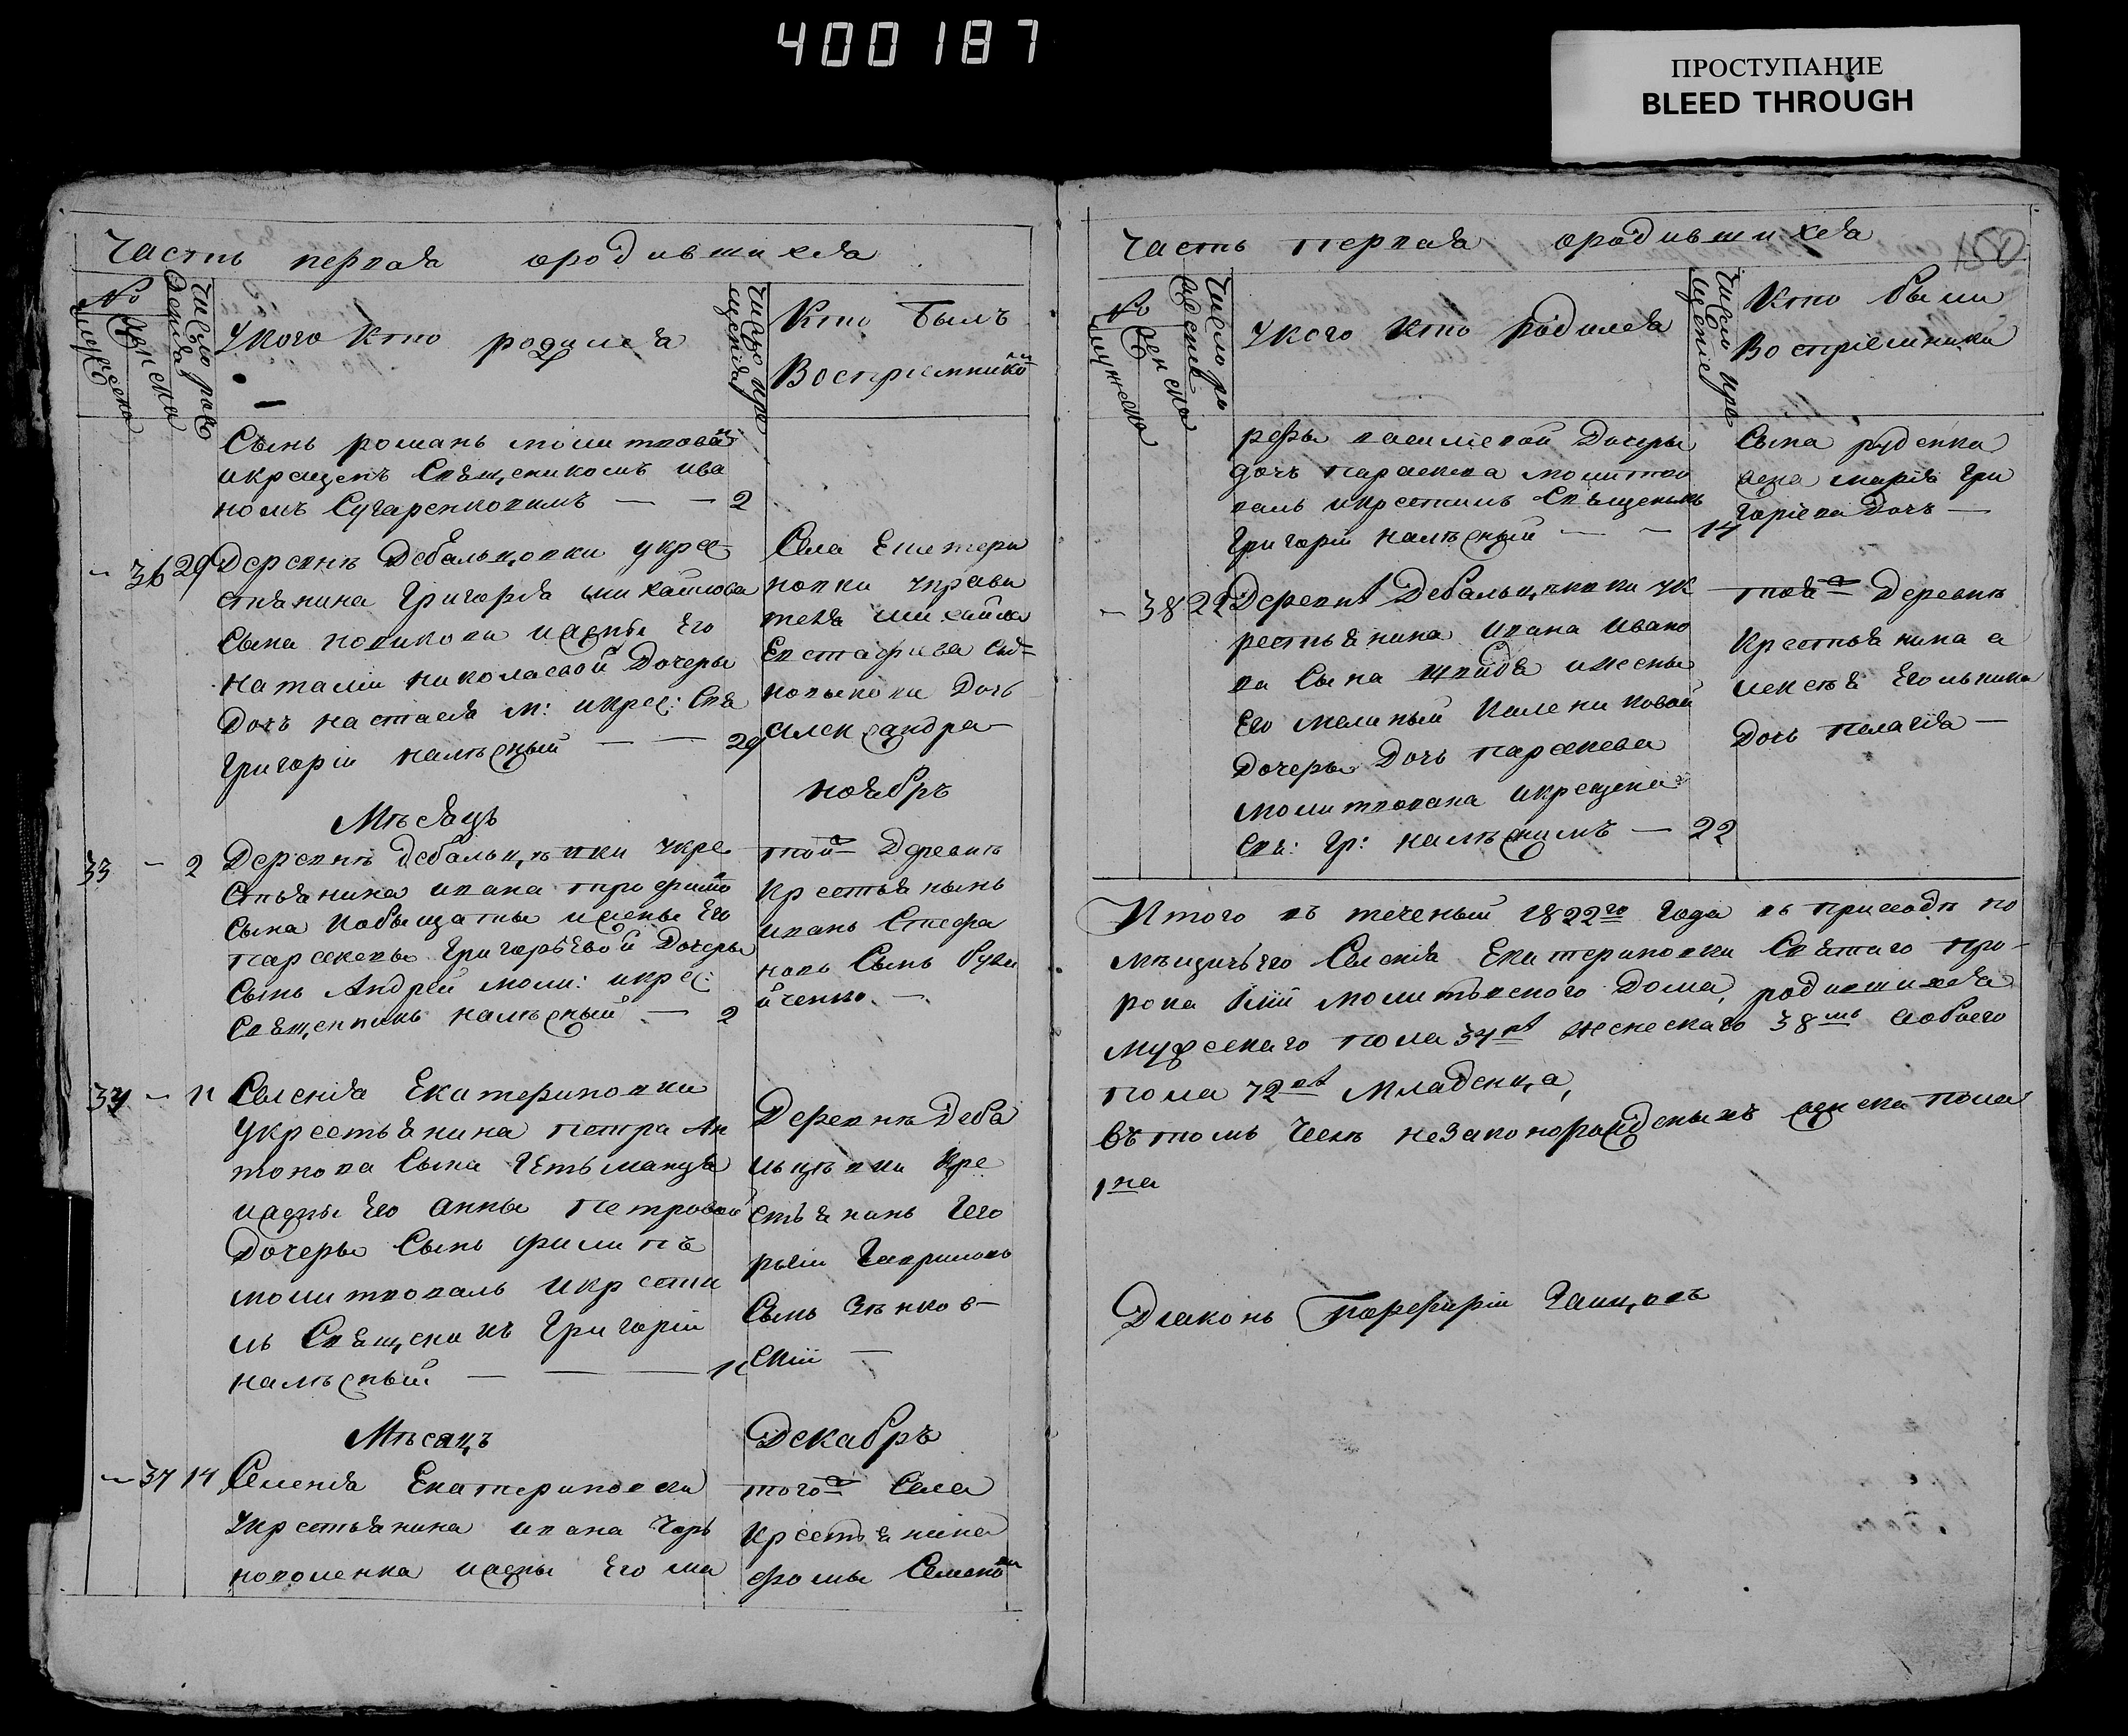 400187
ПРОСТУПАНИЕ
BLEED THROUGH
Часть первая ородившихся
№
мужеска
женска
Число рож
дения
Укого кто родился
Число кре
щения
Кто былъ
Восприемникомъ
Сынъ романъ молитвова
икрещенъ Священикомъ ива
номъ Сугаренковимъ — — 2
- 36 29 Деревнѣ Дебальцовки укре
стянина Григория михайлова
Сына новикова ижены Его
наталии николаевой Дочеры
Дочь настася м: икрес: Свя
Григорій намѣсный — — 29
Села Екатери
новки управи
теля михайла
Евстафиева
Дочь
александра
Мѣсяцъ ноябръ
33 - 2 Деревнѣ дебальцѣвки укре
стьянина ивана трофимо
Сына Кобыщаты ижены Его
параскевы григорьевой Дочеры
Сынъ Андрей моли: икрес:
Священникъ намѣсный — 2
тойж Деревнѣ
Крестьянынъ
иванъ Стефа
новъ Сынъ
34 - 11 Селения Екатериновки
Укрестьянина петра Ан
тонова Сына Гетьманця
ижены Его анны Петровой
Дочеры Сынъ филипъ
молитвовалъ икрести
лъ Священикъ Григорій
намѣсный — — — 11
Деревнѣ Деба
льцѣвки Кре
стьянинъ Гего
рьгій Гавриловъ
Сынъ Зѣнков-
Скій —
Мѣсяцъ Декабръ
- 37 14 Селения Екатериновки
Укрестьянина ивана Чорь
новоленка ижены Его ма
тогож Села
Крестьянина
фомы Семено
Часть первая ородившихся
150
№
мужеска
женска
Число ро
ждения
Укого кто родился
Число кре
щение
Кто были
Восприемники
рефы василевой Дочеры
дочь параскева молитво
валъ икрестилъ Священикъ
Григорій намѣсный — - 14
Сына руденка
жена мария гри
горіева Дочь —
- 38 22 Деревнѣ Дебальцѣвки ук
рестьянина ивана ивано
ва Сына ижены
Его меланьи
Дочеры Дочь параскева
молитвована икрещена
Свя: Гр: намѣснимъ — 22
тояж Деревнѣ
Крестьянина а
лексѣя
Дочь пелагія —
Итого въ теченый 1822го года въ приходѣ по
мѣщичьего Селения Екатериновки Святаго про-
рока Иліи молитвеного Дома, родившихся
мужескаго пола 34рѣ женскаго 38мь аобоего
пола 72ва младенца,
Вътомъ Числѣ незаконорожденыхъ женска пола
1на
Диаконъ Порфирій